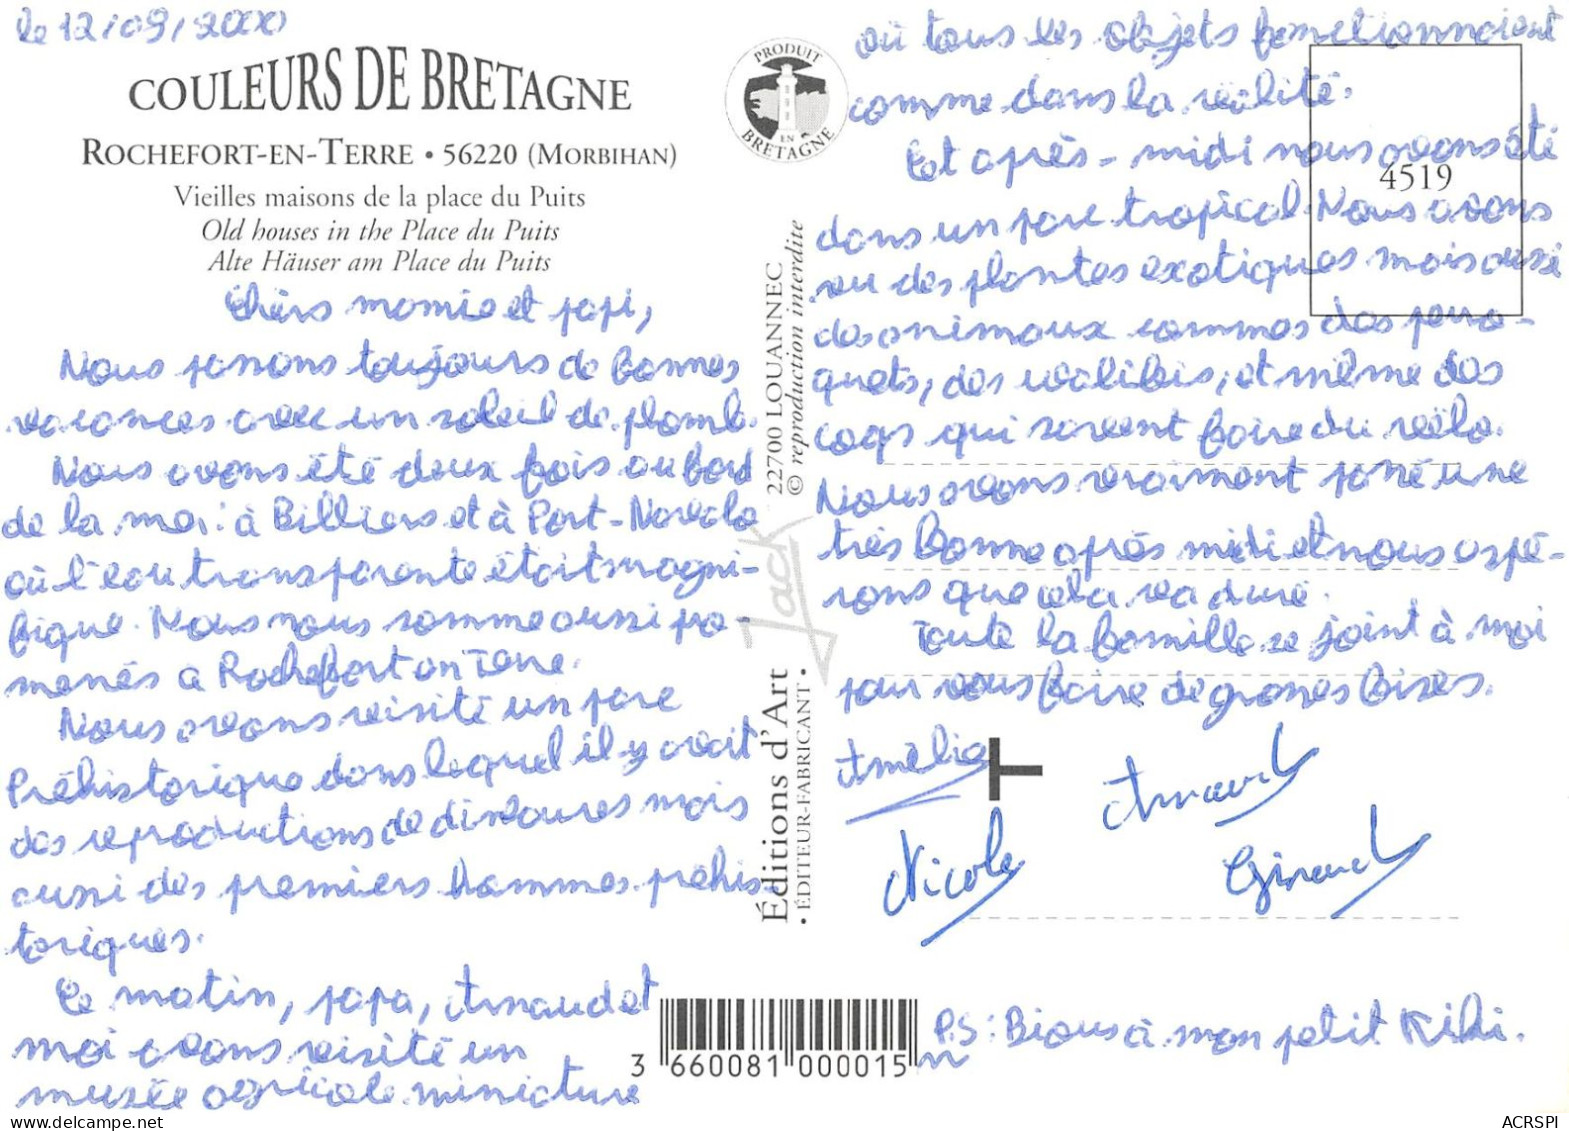 le 12/09/2000
COULEURS DE BRETAGNE
ROCHEFORT-EN-TERRE • 56220 (MORBIHAN)
Vieilles maisons de la place du Puits
Old houses in the Place du Puits
Alte Häuser am Place du Puits
Chèrs mamie et papi,
Nous passons toujours de bonnes
vacances avec un soleil de plomb.
Nous avons été deux fois au bord
de la mer: à Billiers et à Port-Navalo
où l'eau transparente était magni-
fique. Nous nous somme aussi pro-
menés a Rochefort en Terre.
Nous avons visité un parc
Préhistorique dans lequel il y avait
des reproductions de dinosaures mais
aussi des premiers hommes préhis-
toriques.
Ce matin, papa, Arnaud et
moi avons visité un
musée agricole miniature
où tous les objets fonctionnaient
comme dans la réalité.
Cet après-midi nous avons été
dans un parc tropical. Nous avons
vu des plantes exotiques mais aussi
des animaux commes des perro-
quets, des walibis, et même des
coqs qui savent faire du vélo.
Nous avons vraiment passé une
très bonne après midi et nous espé-
rons que cela va duré.
Toute la famille se joint à moi
pour vous faire de grosses bises.
Amélie
Arnaud
Nicole
Giraud
P.S: Bisous à mon petit Kiki.
PRODUIT
EN
BRETAGNE
4519
22700 LOUANNEC
© reproduction interdite
Jack
Éditions d'Art
• ÉDITEUR-FABRICANT •
3 660081 000015
ACRSPI